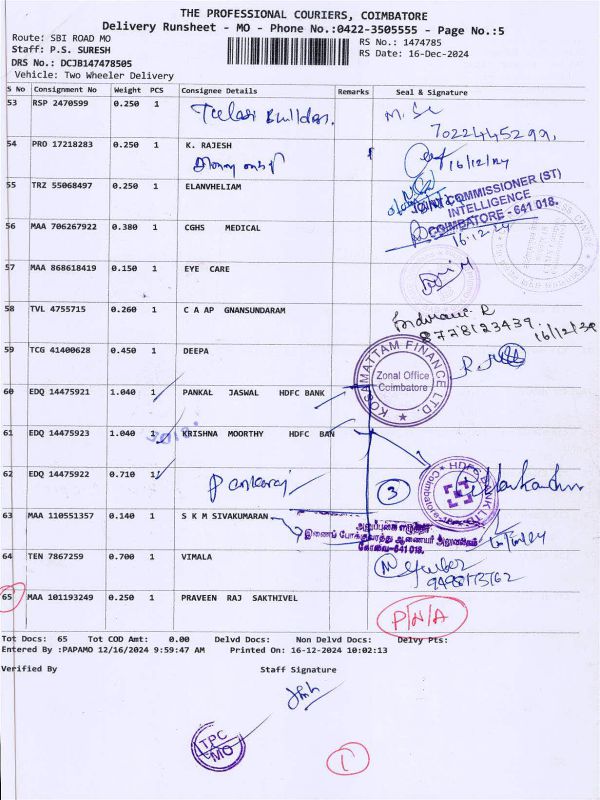 THE PROFESSIONAL COURIERS, COIMBATORE
Delivery Runsheet - MO - Phone No.:0422-3505555 - Page No.:5
Route: SBI ROAD MO
RS No.: 1474785
Staff: P.S. SURESH
RS Date: 16-Dec-2024
DRS No.: DCJB147478505
Vehicle: Two Wheeler Delivery
S No Consignment No Weight PCS Consignee Details Remarks Seal & Signature
53 RSP 2470599 0.250 1
7022445299,
54 PRO 17218283 0.250 1 K. RAJESH
16/12/24
55 TRZ 55068497 0.250 1 ELANVHELIAM
JOINT COMMISSIONER (ST)
INTELLIGENCE
COIMBATORE - 641 018.
56 MAA 706267922 0.380 1 CGHS MEDICAL
16.12.24
57 MAA 868618419 0.150 1 EYE CARE
58 TVL 4755715 0.260 1 C A AP GNANSUNDARAM
8778123439.
16/12/24
59 TCG 41400628 0.450 1 DEEPA
KOSAMATTAM FINANCE LTD.
Zonal Office
Coimbatore
60 EDQ 14475921 1.040 1 PANKAL JASWAL HDFC BANK
61 EDQ 14475923 1.040 1 KRISHNA MOORTHY HDFC BAN
62 EDQ 14475922 0.710 1
Pankaraj
3
HDFC BANK LTD
63 MAA 110551357 0.140 1 S K M SIVAKUMARAN
கோவை-641 018.
64 TEN 7867259 0.700 1 VIMALA
65 MAA 101193249 0.250 1 PRAVEEN RAJ SAKTHIVEL
P/N/A
Tot Docs: 65 Tot COD Amt: 0.00 Delvd Docs: Non Delvd Docs: Delvy Pts:
Entered By :PAPAMO 12/16/2024 9:59:47 AM Printed On: 16-12-2024 10:02:13
Verified By Staff Signature
TPC
MO
1